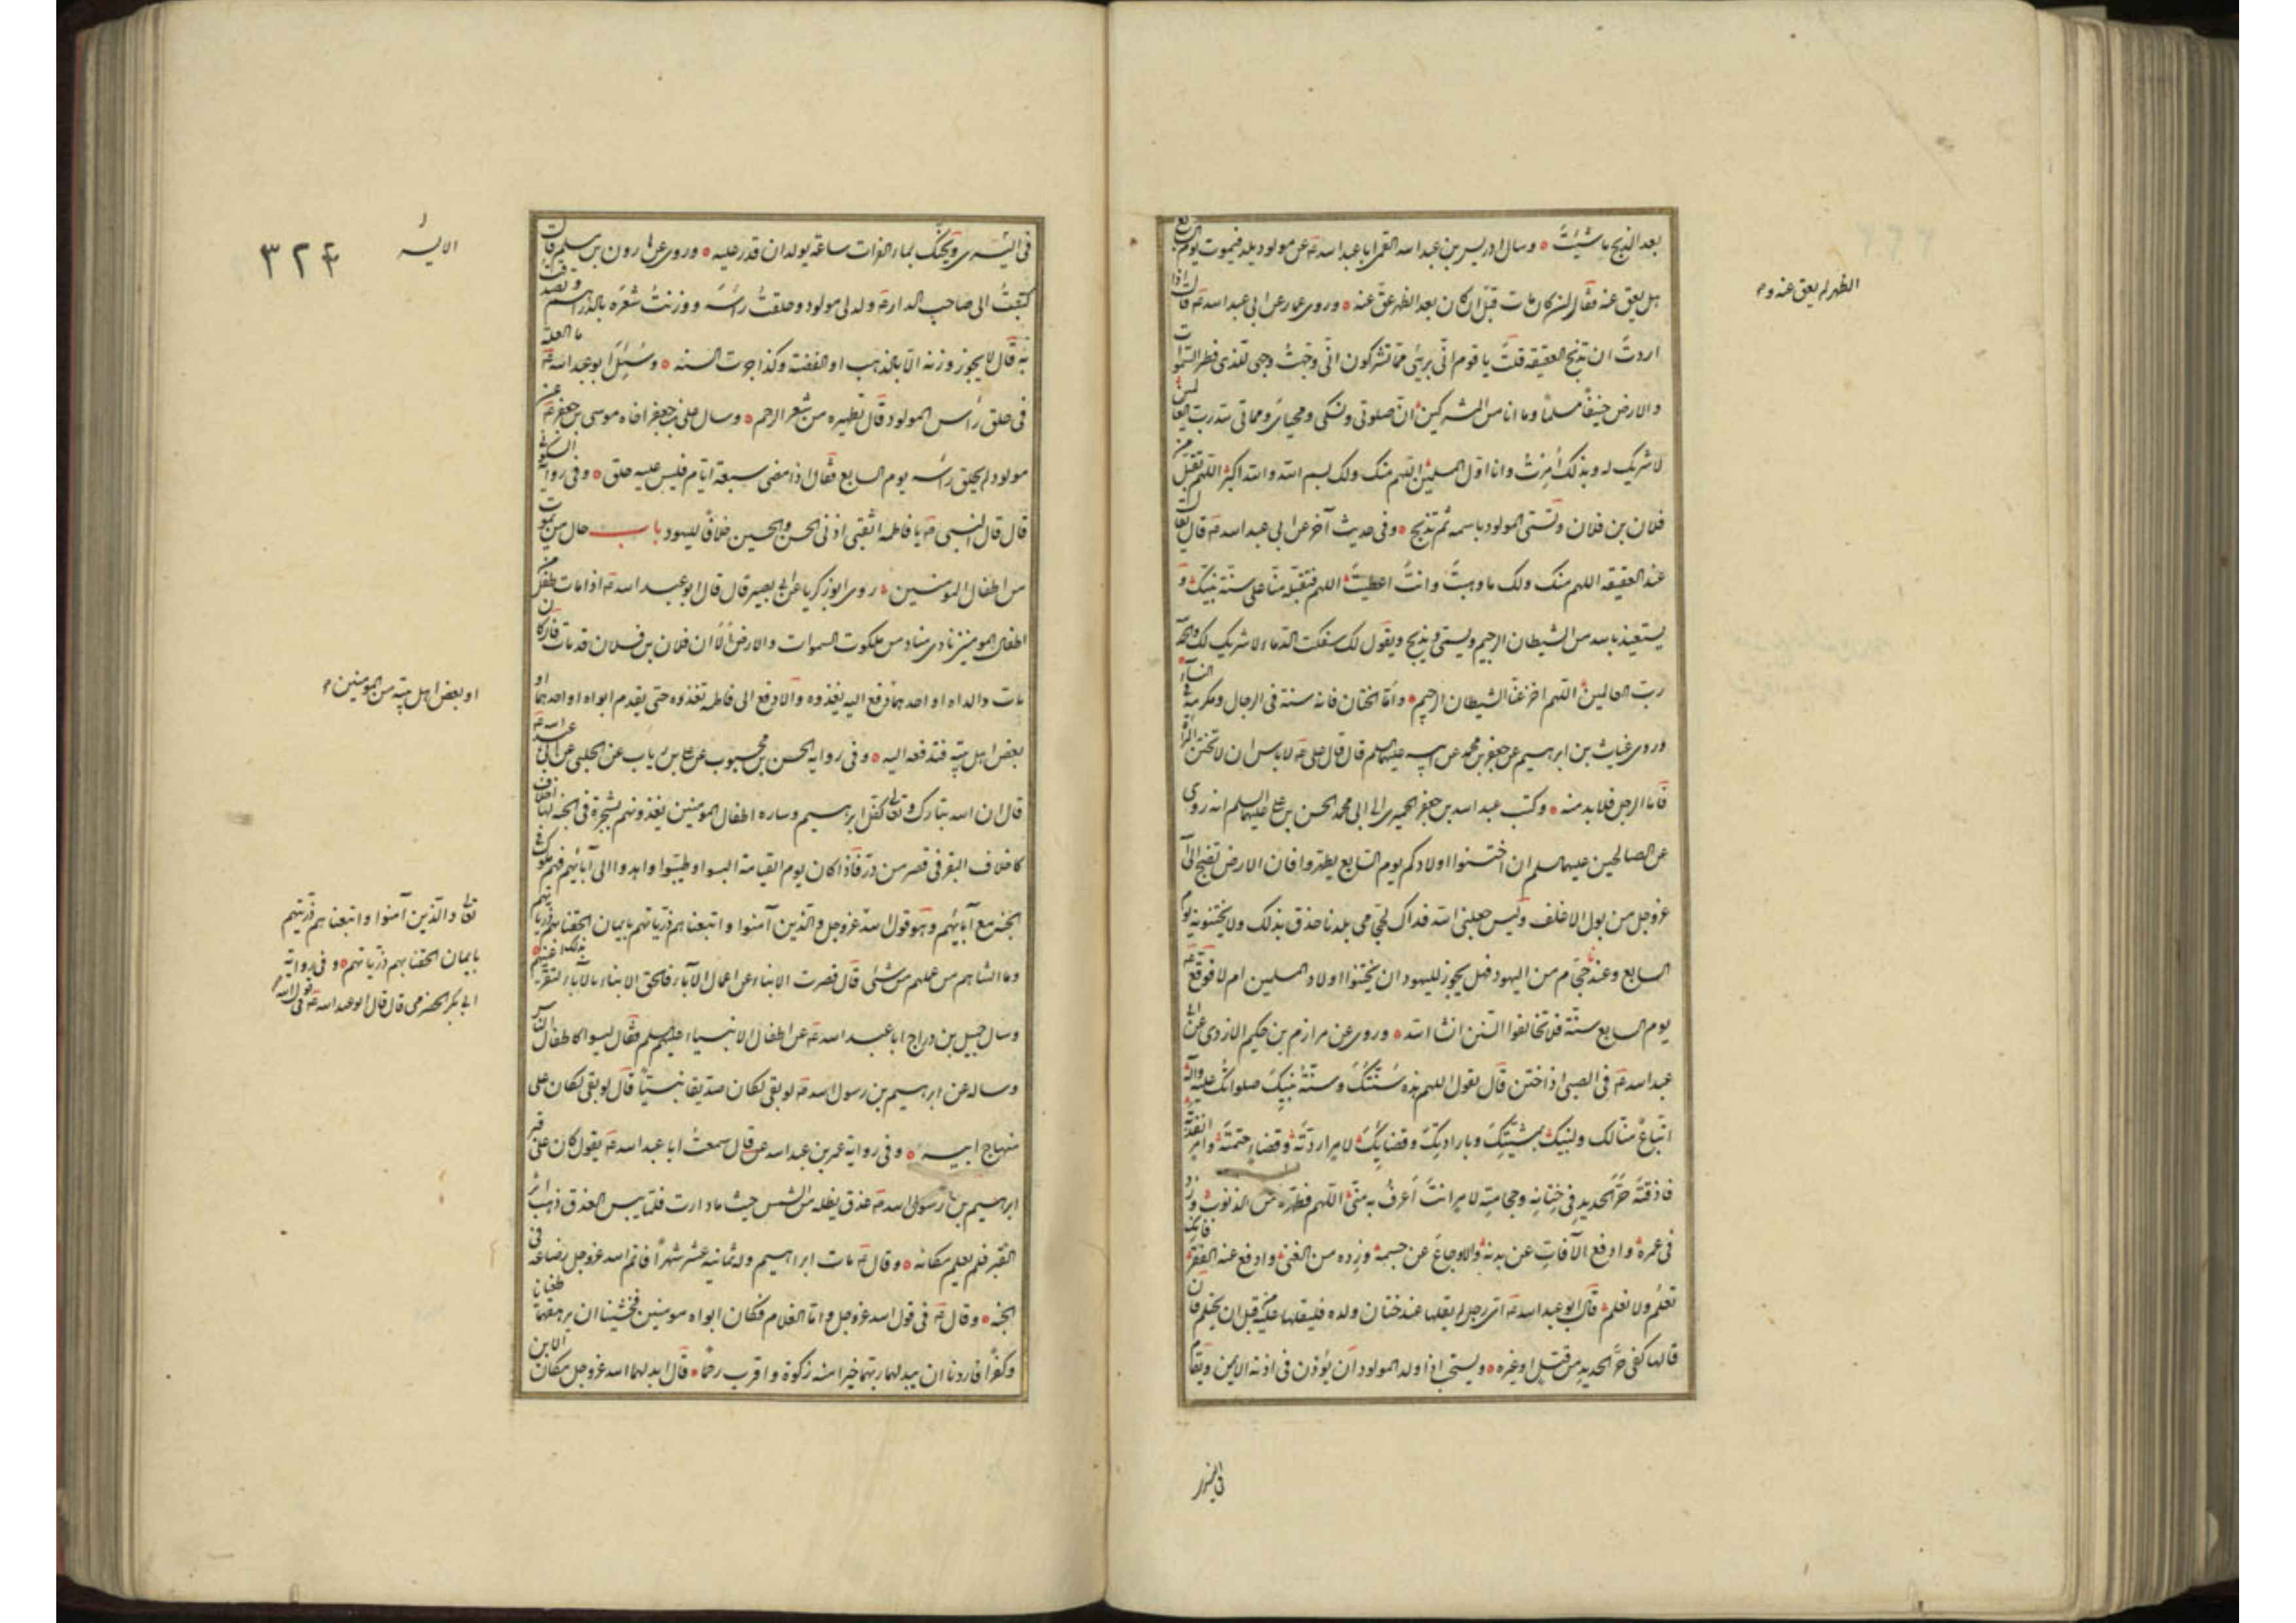 بعد الذبح ما شئت ه وسال ادريس بن عبد الله القمي ابا عبد الله ع عن مولود يولد فيموت يوم السابع
هل يعق عنه فقال ان كان مات قبل الظهر لم يعق عنه وان كان بعد الظهر عق عنه ه وروى عمار عن ابي عبد الله ع قال اذا
اردت ان تذبح العقيقه قلت يا قوم اني بريء مما تشركون اني وجهت وجهي للذي فطر السموات
والارض حنيفا مسلما وما انا من المشركين ان صلوتي ونسكي ومحياي ومماتي لله رب العالمين
لا شريك له وبذلك امرت وانا اول المسلمين اللهم منك ولك بسم الله والله اكبر اللهم تقبل من
فلان بن فلان وتسمى المولود باسمه ثم تذبح ه وفي حديث آخر عن ابي عبد الله ع قال يقال
عند العقيقه اللهم منك ولك ما وهبت وانت اعطيت اللهم فتقبله منا على سنة نبيك و
يستعيذ بالله من الشيطان الرجيم ويسمي ويذبح ويقول لك سفكت الدماء لا شريك لك والحمد لله
رب العالمين اللهم اخز عنا الشيطان الرجيم ه واما الختان فانه سنة في الرجال ومكرمة في النساء
وروى غياث بن ابرهيم عن جعفر بن محمد عن ابيه عليهما السلم قال قال علي ع لا باس ان لا تختتن المراة
فاما الرجل فلا بد منه ه وكتب عبد الله بن جعفر الحميري الى ابي محمد الحسن بن علي عليهما السلم انه روي
عن الصالحين عليهم السلم ان اختنوا اولادكم يوم السابع يطهروا فان الارض تضج الى الله
عز وجل من بول الاغلف وليس جعلني الله فداك لحجامي بلدنا حذق بذلك ولا يختنونه يوم
السابع وعندنا حجام من اليهود فهل يجوز لليهود ان يختنوا اولاد المسلمين ام لا فوقع ع
يوم السابع سنة فلا تخالفوا السنن انشا الله ه وروى عن مرازم بن حكيم الازدي عن ابي
عبد الله ع في الصبي اذا ختن قال يقول اللهم هذه سنتك وسنة نبيك صلواتك عليه وآله
اتباع منا لك ولنبيك بمشيتك وبارادتك وقضايك لامر اردته وقضاء حتمته وامر انفذته
فاذقته حر الحديد في ختانه وحجامته لامر انت اعرف به مني اللهم فطهره من الذنوب وزد
في عمره وادفع الآفات عن بدنه والاوجاع عن جسمه وزده من الغنى وادفع عنه الفقر فانك
تعلم ولا نعلم قال ابو عبد الله ع اي رجل لم يقلها عند ختان ولده فليقلها عليه قبل ان يحتلم فان
قالها كفي حر الحديد من قتل او غيره ه ويستحب اذا ولد المولود ان يؤذن في اذنه الايمن ويقام
الظهر لم يعق عنه و
في اليسرى ويحنك بماء الفرات ساعة يولد ان قدر عليه ه وروى عن هارون بن مسلم قال
كتبت الى صاحب الدار ع ولد لي مولود وحلقت راسه ووزنت شعره بالدراهم وتصدقت
به قال لا يجوز وزنه الا بالذهب او الفضة وكذا جرت السنه ه وسئل ابو عبد الله ع ما العلة
في حلق راس المولود قال تطهيره من شعر الرحم ه وسال علي بن جعفر اخاه موسى بن جعفر ع عن
مولود لم يحلق راسه يوم السابع فقال اذا مضى سبعة ايام فليس عليه حلق ه وفي رواية السكوني
قال قال النبي ص يا فاطمه اثقبي اذني الحسن والحسين خلافا لليهود باب حال من يموت
من اطفال المومنين ه روى ابو زكريا عن ابي بصير قال قال ابو عبد الله ع اذا مات طفل من
اطفال المومنين نادى مناد من ملكوت السموات والارض الا ان فلان بن فلان قد مات فان كان
مات والداه او احدهما دفع اليه يغذوه والا دفع الى فاطمه تغذوه حتى يقدم ابواه او احدهما او
بعض اهل بيته فتدفعه اليه ه وفي رواية الحسن بن محبوب عن علي بن رياب عن الحلبي عن ابي عبد الله ع
قال ان الله تبارك وتعالى كفل ابرهيم وساره اطفال المومنين يغذونهم بشجرة في الجنه لها اخلاف
كاخلاف البقر في قصر من در فاذا كان يوم القيامة البسوا وطيبوا واهدوا الى آبائهم فهم ملوك في
الجنه مع آبائهم وهو قول الله عز وجل والذين آمنوا واتبعناهم ذرياتهم بايمان الحقنا بهم ذرياتهم
وما التناهم من عملهم من شئ قال قصرت الابناء عن اعمال الآباء فالحق الابناء بالآباء لتقر بذلك اعينهم
وسال جميل بن دراج ابا عبد الله ع عن اطفال الانبياء عليهم السلم فقال ليسوا كاطفال الناس
وساله عن ابرهيم بن رسول الله ص لو بقي لكان صديقا نبيا قال لو بقي لكان على
منهاج ابيه ه وفي رواية عمر بن عبد الله عن قال سمعت ابا عبد الله ع يقول كان على قبر
ابرهيم بن رسول الله ص عذق يظله من الشمس حيث ما دارت فلما يبس العذق ذهب اثر
القبر فلم يعلم مكانه ه وقال ع مات ابراهيم وله ثمانية عشر شهرا فاتم الله عز وجل رضاعه في
الجنه ه وقال ع في قول الله عز وجل واما الغلام فكان ابواه مومنين فخشينا ان يرهقهما طغيانا
وكفرا فاردنا ان يبدلهما ربهما خيرا منه زكوة واقرب رحما ه قال ابدلهما الله عز وجل مكان الابن
٣٢٤
او بعض اهل بيته من المومنين
تعالى والذين آمنوا واتبعناهم ذريتهم
بايمان الحقنا بهم ذرياتهم ه وفي رواية
ابي بكر الحضرمي قال قال ابو عبد الله ع في قول الله